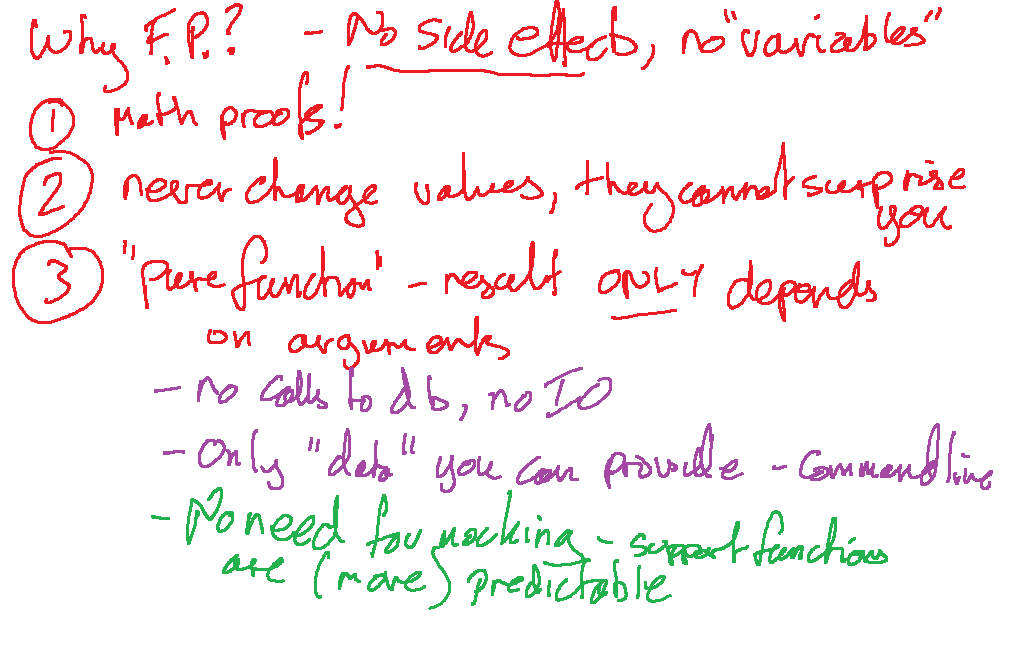 Why F.P.? - No side effects, no "variables"
① Math proofs!
② never change values, they cannot surprise
you
③ "Pure function" - result ONLY depends
on arguments
- no calls to db, no IO
- Only "data" you can provide - Commandline
- No need for mocking - support functions
are (more) predictable